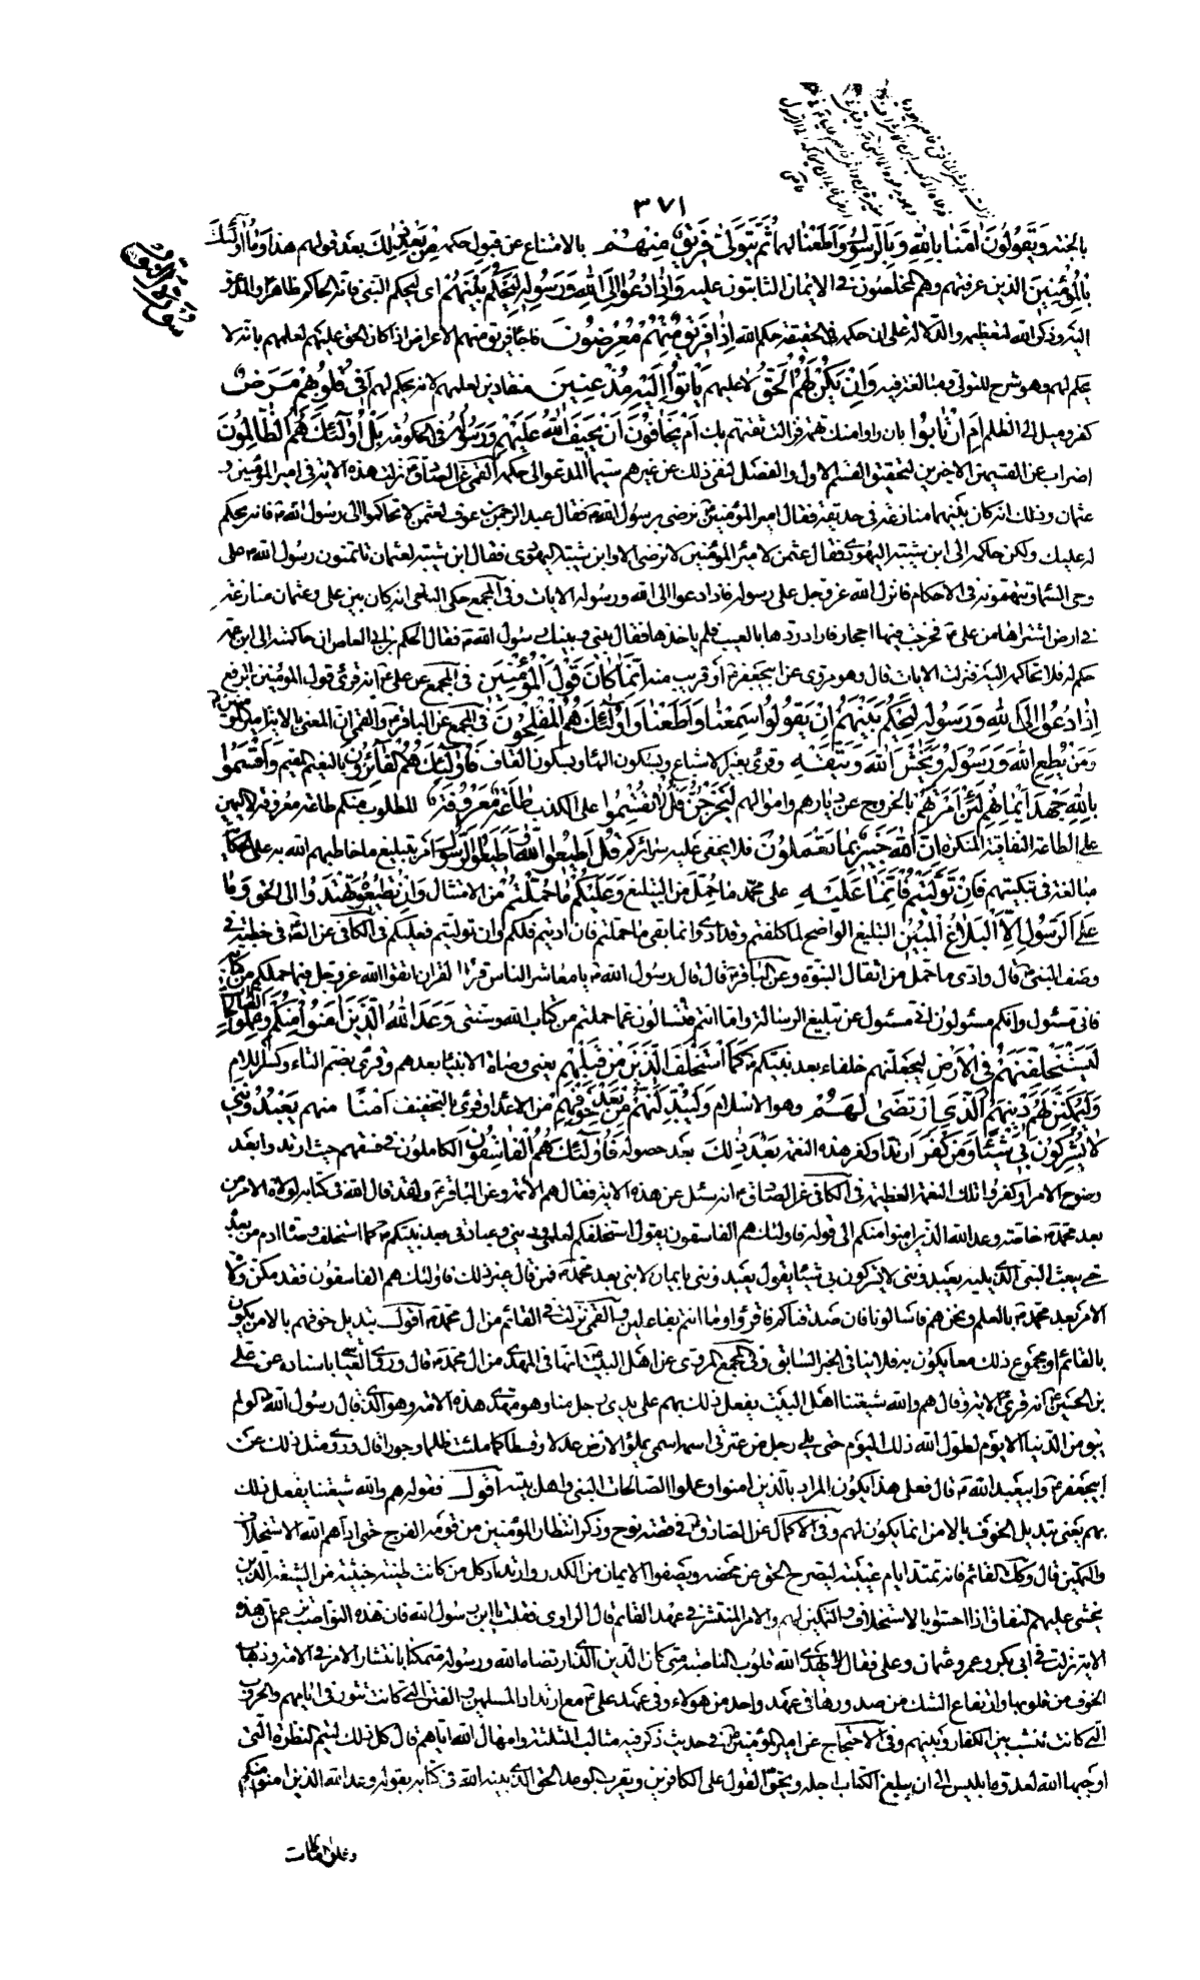 ٣٧١
سورة النور
بالجنة وَيَقُولُونَ آمَنَّا بِاللَّهِ وَبِالرَّسُولِ وَأَطَعْنَا لهما ثُمَّ يَتَوَلَّى فَرِيقٌ مِنْهُمْ بالامتناع عن قبول حكمه مِنْ بَعْدِ ذَلِكَ بعد قولهم هذا وَمَا أُولَئِكَ
بِالْمُؤْمِنِينَ الذين عرفتهم وهم المخلصون في الايمان الثابتون عليه وَإِذَا دُعُوا إِلَى اللَّهِ وَرَسُولِهِ لِيَحْكُمَ بَيْنَهُمْ اى ليحكم النبي فانه الحاكم ظاهرا والمدعو
اليه وذكر الله لتعظيمه والدلالة على ان حكمه في الحقيقة حكم الله إِذَا فَرِيقٌ مِنْهُمْ مُعْرِضُونَ فاجأ فريق منهم الاعراض اذا كان الحق عليهم لعلمهم بانه لا
يحكم لهم وهو شرح للتولي ومبالغة فيه وَإِنْ يَكُنْ لَهُمُ الْحَقُّ لا عليهم يَأْتُوا إِلَيْهِ مُذْعِنِينَ منقادين لعلمهم لانه يحكم لهم أَفِي قُلُوبِهِمْ مَرَضٌ
كفر وميل الى الظلم أَمِ ارْتَابُوا بان راوا منك تهمة فزالت ثقتهم بك أَمْ يَخَافُونَ أَنْ يَحِيفَ اللَّهُ عَلَيْهِمْ وَرَسُولُهُ في الحكومة بَلْ أُولَئِكَ هُمُ الظَّالِمُونَ
اضراب عن القسمين الاخيرين لتحقيق القسم الاول والفصل لنفي ذلك عن غيرهم سيما المدعو الى حكمه القمي عن الصادق ع نزلت هذه الاية في امير المؤمنين و
عثمان وذلك انه كان بينهما منازعة في حديقة فقال امير المؤمنين ع نرضى برسول الله ص فقال عبد الرحمن بن عوف لعثمن لا تحاكمه الى رسول الله ص فانه يحكم
له عليك ولكن حاكمه الى ابن شيبة اليهودي فقال عثمن لامير المؤمنين لا نرضى الا بابن شيبة اليهودي فقال ابن شيبة لعثمان تاتمنون رسول الله ص على
وحي السماء وتتهمونه في الاحكام فانزل الله عز وجل على رسوله فاذا دعوا الى الله ورسوله الايات وفي المجمع حكى البلخي انه كان بين علي وعثمان منازعة
في ارض اشتراها من علي ع فخرجت فيها احجار فاراد ردها بالعيب فلم ياخذها فقال بيني وبينك رسول الله ص فقال الحكم بن ابي العاص ان حاكمته الى ابن عمه
حكم له فلا تحاكمه اليه فنزلت الايات قال وهو مروي عن ابي جعفر ع او قريب منه إِنَّمَا كَانَ قَوْلَ الْمُؤْمِنِينَ في المجمع عن علي ع انه قرئ قول المؤمنين بالرفع
إِذَا دُعُوا إِلَى اللَّهِ وَرَسُولِهِ لِيَحْكُمَ بَيْنَهُمْ أَنْ يَقُولُوا سَمِعْنَا وَأَطَعْنَا وَأُولَئِكَ هُمُ الْمُفْلِحُونَ في المجمع عن الباقر ع والقمي ان المعني بالاية امير المؤمنين ع
وَمَنْ يُطِعِ اللَّهَ وَرَسُولَهُ وَيَخْشَ اللَّهَ وَيَتَّقْهِ وقرئ بغير الاشباع وبسكون الهاء وبسكون القاف فَأُولَئِكَ هُمُ الْفَائِزُونَ بالنعيم المقيم وَأَقْسَمُوا
بِاللَّهِ جَهْدَ أَيْمَانِهِمْ لَئِنْ أَمَرْتَهُمْ بالخروج عن ديارهم واموالهم لَيَخْرُجُنَّ قُلْ لَا تُقْسِمُوا على الكذب طَاعَةٌ مَعْرُوفَةٌ المطلوب منكم طاعة معروفة لا اليمين
على الطاعة النفاقية المنكرة إِنَّ اللَّهَ خَبِيرٌ بِمَا تَعْمَلُونَ فلا يخفى عليه سرائركم قُلْ أَطِيعُوا اللَّهَ وَأَطِيعُوا الرَّسُولَ امر بتبليغ ما خاطبهم الله به على الحكاية
مبالغة في تبكيتهم فَإِنْ تَوَلَّوْا فَإِنَّمَا عَلَيْهِ على محمد مَا حُمِّلَ من التبليغ وَعَلَيْكُمْ مَا حُمِّلْتُمْ من الامتثال وَإِنْ تُطِيعُوهُ تَهْتَدُوا الى الحق وَمَا
عَلَى الرَّسُولِ إِلَّا الْبَلَاغُ الْمُبِينُ التبليغ الواضح لما كلفتم وقد ادى وانما بقي ما حملتم فان اديتم فلكم وان توليتم فعليكم في الكافي عن الصادق ع في خطبته في
وصف النبي ص قال وادى ما حمل من اثقال النبوة وعن الباقر ع قال قال رسول الله ص يا معاشر الناس قراء القران اتقوا الله عز وجل فيما حملكم من كتابه
فاني مسئول وانكم مسئولون اني مسئول عن تبليغ الرسالة واما انتم فتسالون عما حملتم من كتاب الله وسنتي وَعَدَ اللَّهُ الَّذِينَ آمَنُوا مِنْكُمْ وَعَمِلُوا الصَّالِحَاتِ
لَيَسْتَخْلِفَنَّهُمْ فِي الْأَرْضِ ليجعلنهم خلفاء بعد نبيكم ص كَمَا اسْتَخْلَفَ الَّذِينَ مِنْ قَبْلِهِمْ يعني وصاة الانبياء بعدهم وقرئ بضم التاء وكسر اللام
وَلَيُمَكِّنَنَّ لَهُمْ دِينَهُمُ الَّذِي ارْتَضَى لَهُمْ وهو الاسلام وَلَيُبَدِّلَنَّهُمْ مِنْ بَعْدِ خَوْفِهِمْ من الاعداء وقرئ بالتخفيف أَمْنًا منهم يَعْبُدُونَنِي
لَا يُشْرِكُونَ بِي شَيْئًا وَمَنْ كَفَرَ ارتد او كفر هذه النعمة بَعْدَ ذَلِكَ بعد حصوله فَأُولَئِكَ هُمُ الْفَاسِقُونَ الكاملون في فسقهم حيث ارتدوا بعد
وضوح الامر او كفروا تلك النعمة العظيمة في الكافي عن الصادق ع انه سئل عن هذه الاية فقال هم الائمة وعن الباقر ع ولقد قال الله في كتابه لولاة الامر من
بعد محمد ص خاصة وعد الله الذين امنوا منكم الى قوله فاولئك هم الفاسقون يقول استخلفكم لعلمي وديني وعبادتي بعد نبيكم ص كما استخلف وصاة ادم من بعده
حتى يبعث النبي الذي يليه يعبدونني لا يشركون بي شيئا يقول يعبدونني بايمان لا نبي بعد محمد ص فمن قال غير ذلك فاولئك هم الفاسقون فقد مكن ولاة
الامر بعد محمد ص بالعلم ونحن هم فاسالونا فان صدقناكم فاقروا وما انتم بفاعلين والقمي نزلت في القائم من ال محمد ص اقول تبديل خوفهم بالامن يكون
بالقائم او مجموع ذلك معا يكون به فلا ينافي الخبر السابق وفي المجمع المروي عن اهل البيت ع انها في المهدي من ال محمد ص قال وروى العياشي باسناده عن علي
بن الحسين ع انه قرئ الاية وقال هم والله شيعتنا اهل البيت يفعل ذلك بهم على يدي رجل منا وهو مهدي هذه الامة وهو الذي قال رسول الله ص لو لم
يبق من الدنيا الا يوم لطول الله ذلك اليوم حتى يلي رجل من عترتي اسمه اسمي يملؤ الارض عدلا وقسطا كما ملئت ظلما وجورا قال وروي مثل ذلك عن
ابي جعفر ع وابي عبد الله ع قال فعلى هذا يكون المراد بالذين امنوا وعملوا الصالحات النبي واهل بيته اقول فقوله هم والله شيعتنا يفعل ذلك
بهم يعني تبديل الخوف بالامن انما يكون لهم وفي الاكمال عن الصادق ع في قصة نوح وذكر انتظار المؤمنين من قومه الفرج حتى اراهم الله الاستخلاف
والتمكين قال وكذلك القائم فانه تمتد ايام غيبته ليصرح الحق عن محضه ويصفوا الايمان من الكدر وارتداد كل من كانت طينته خبيثة من الشيعة الذين
يخشى عليهم النفاق اذا احسوا بالاستخلاف والتمكين لهم والامر المنتشر في عهد القائم قال الراوي فقلت يا ابن رسول الله فان هذه النواصب تزعم ان هذه
الاية نزلت في ابي بكر وعمر وعثمان وعلي فقال لا يهدي الله قلوب الناصبة متى كان الدين الذي ارتضاه الله ورسوله متمكنا بانتشار الامن في الامة وذهاب
الخوف من قلوبها وارتفاع الشك من صدورها في عهد واحد من هؤلاء وفي عهد علي ع مع ارتداد المسلمين والفتن التي كانت تثور في ايامهم والحروب
التي كانت تنشب بين الكفار وبينهم وفي الاحتجاج عن امير المؤمنين ع في حديث ذكر فيه مثالب الثلثة وامهال الله اياهم قال كل ذلك لتتم النظرة التي
اوجبها الله لعدوه ابليس الى ان يبلغ الكتاب اجله ويحق القول على الكافرين ويقرب الوعد الحق الذي بينه الله في كتابه بقوله وعد الله الذين امنوا منكم
وعملوا الصالحات